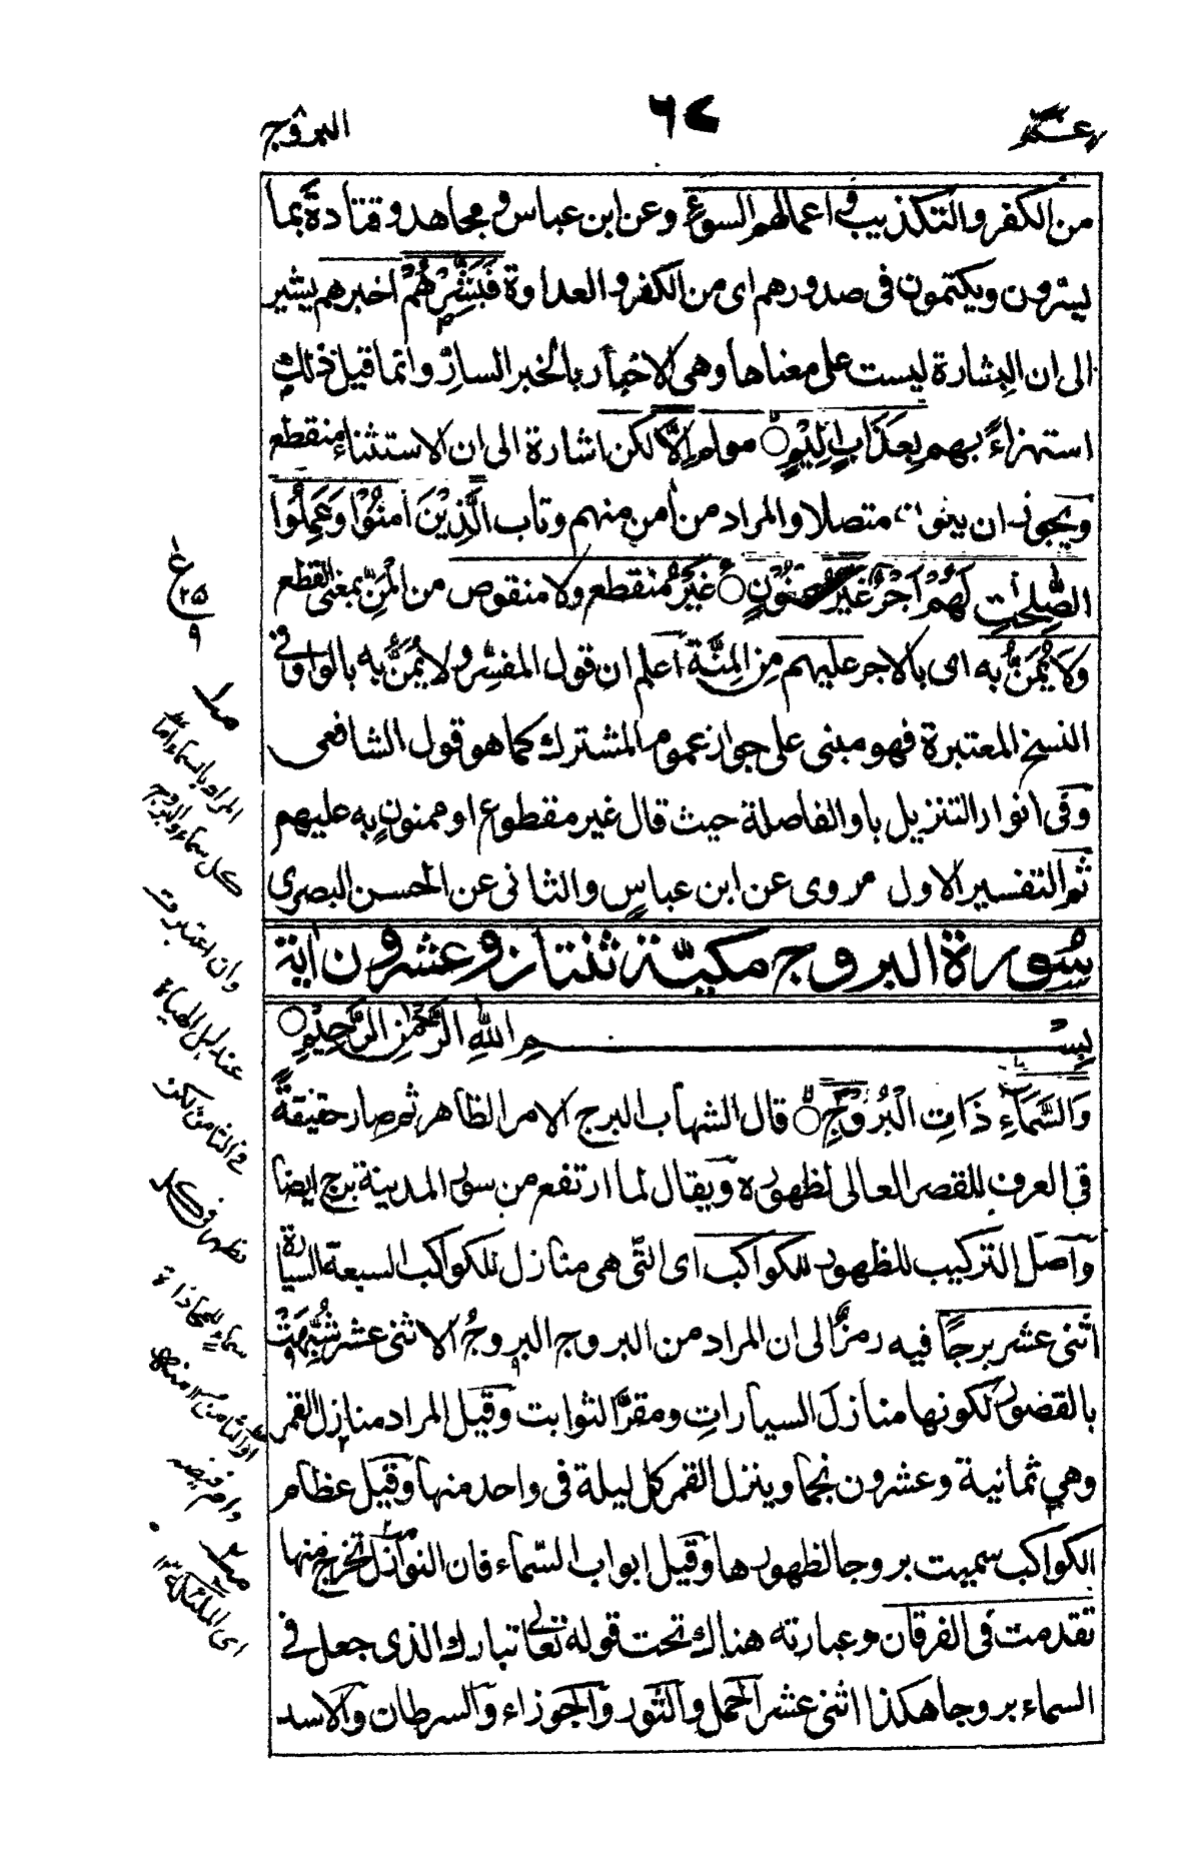 عم
٦٧
البروج
من الكفر والتكذيب فى اعمالهم السوء وعن ابن عباس ومجاهد وقتادة بما
يسرون ويكتمون فى صدورهم اى من الكفر والعداوة فَبَشِّرْهُمْ اخبرهم يشير
الى ان البشارة ليست على معناها وهى الاخبار بالخبر السارّ وانما قيل ذلك
استهزاءً بهم بِعَذَابٍ اَلِيْمٍ ○ اِلَّا لكن اشارة الى ان الاستثناء منقطع
ويجوز ان يكون متصلا والمراد من اٰمن منهم وتاب الَّذِيْنَ اٰمَنُوْا وَعَمِلُوا
الصّٰلِحٰتِ لَهُمْ اَجْرٌ غَيْرُ مَمْنُوْنٍ ○ غَيْرُ مُنقطع ولا منقوص من المَنِّ بمعنى القطع
وَلَا يُمَنُّ به اى بالاجر عليهم مِن المِنَّة اعلم ان قول المفسّر ولا يُمَنُّ به بالواو فى
النسخ المعتبرة فهو مبنى على جواز عموم المشترك كما هو قول الشافعى
وفى انوار التنزيل باو الفاصلة حيث قال غير مقطوع او ممنونٍ به عليهم
ثم التفسير الاول مروى عن ابن عباس والثانى عن الحسن البصرى
سُورة البروج مكيّة ثنتان وعشرون اية
بِسْمِ اللهِ الرَّحْمٰنِ الرَّحِيْمِ ○
وَالسَّمَاءِ ذَاتِ الْبُرُوْجِ ○ قال الشهاب البرج الامر الظاهر ثم صار حقيقةً
فى العرف للقصر العالى لظهوره ويقال لما ارتفع من سور المدينة برج ايضا
واصل التركيب للظهور للكواكب اى التى هى منازل للكواكب السبعة السيارة
اثنى عشر برجًا فيه رمزٌ الى ان المراد من البروج البروجُ الاثنى عشر شُبِّهَتْ
بالقصور لكونها منازلَ السياراتِ ومقرَّ الثوابت وقيل المراد منازل القمر
وهى ثمانية وعشرون نجما وينزل القمر كل ليلة فى واحد منها وقيل عظام
الكواكب سميت بروجا لظهورها وقيل ابواب السّماء فان النوازل تخرج منها
تقدمت فى الفرقان وعبارته هناك تحت قوله تعالى تبارك الذى جعل فى
السماء بروجا هكذا اثنى عشر الحمل والثور والجوزاء والسرطان والاسد
ع
٢٥
٩
المراد بالسماء اما
كل سماء
وان اعتبرت
عند اهل الهيأة
فى الثامن لكن
تظهر فى كل
سماء للمحاذاة
اى الملئكة ١٢